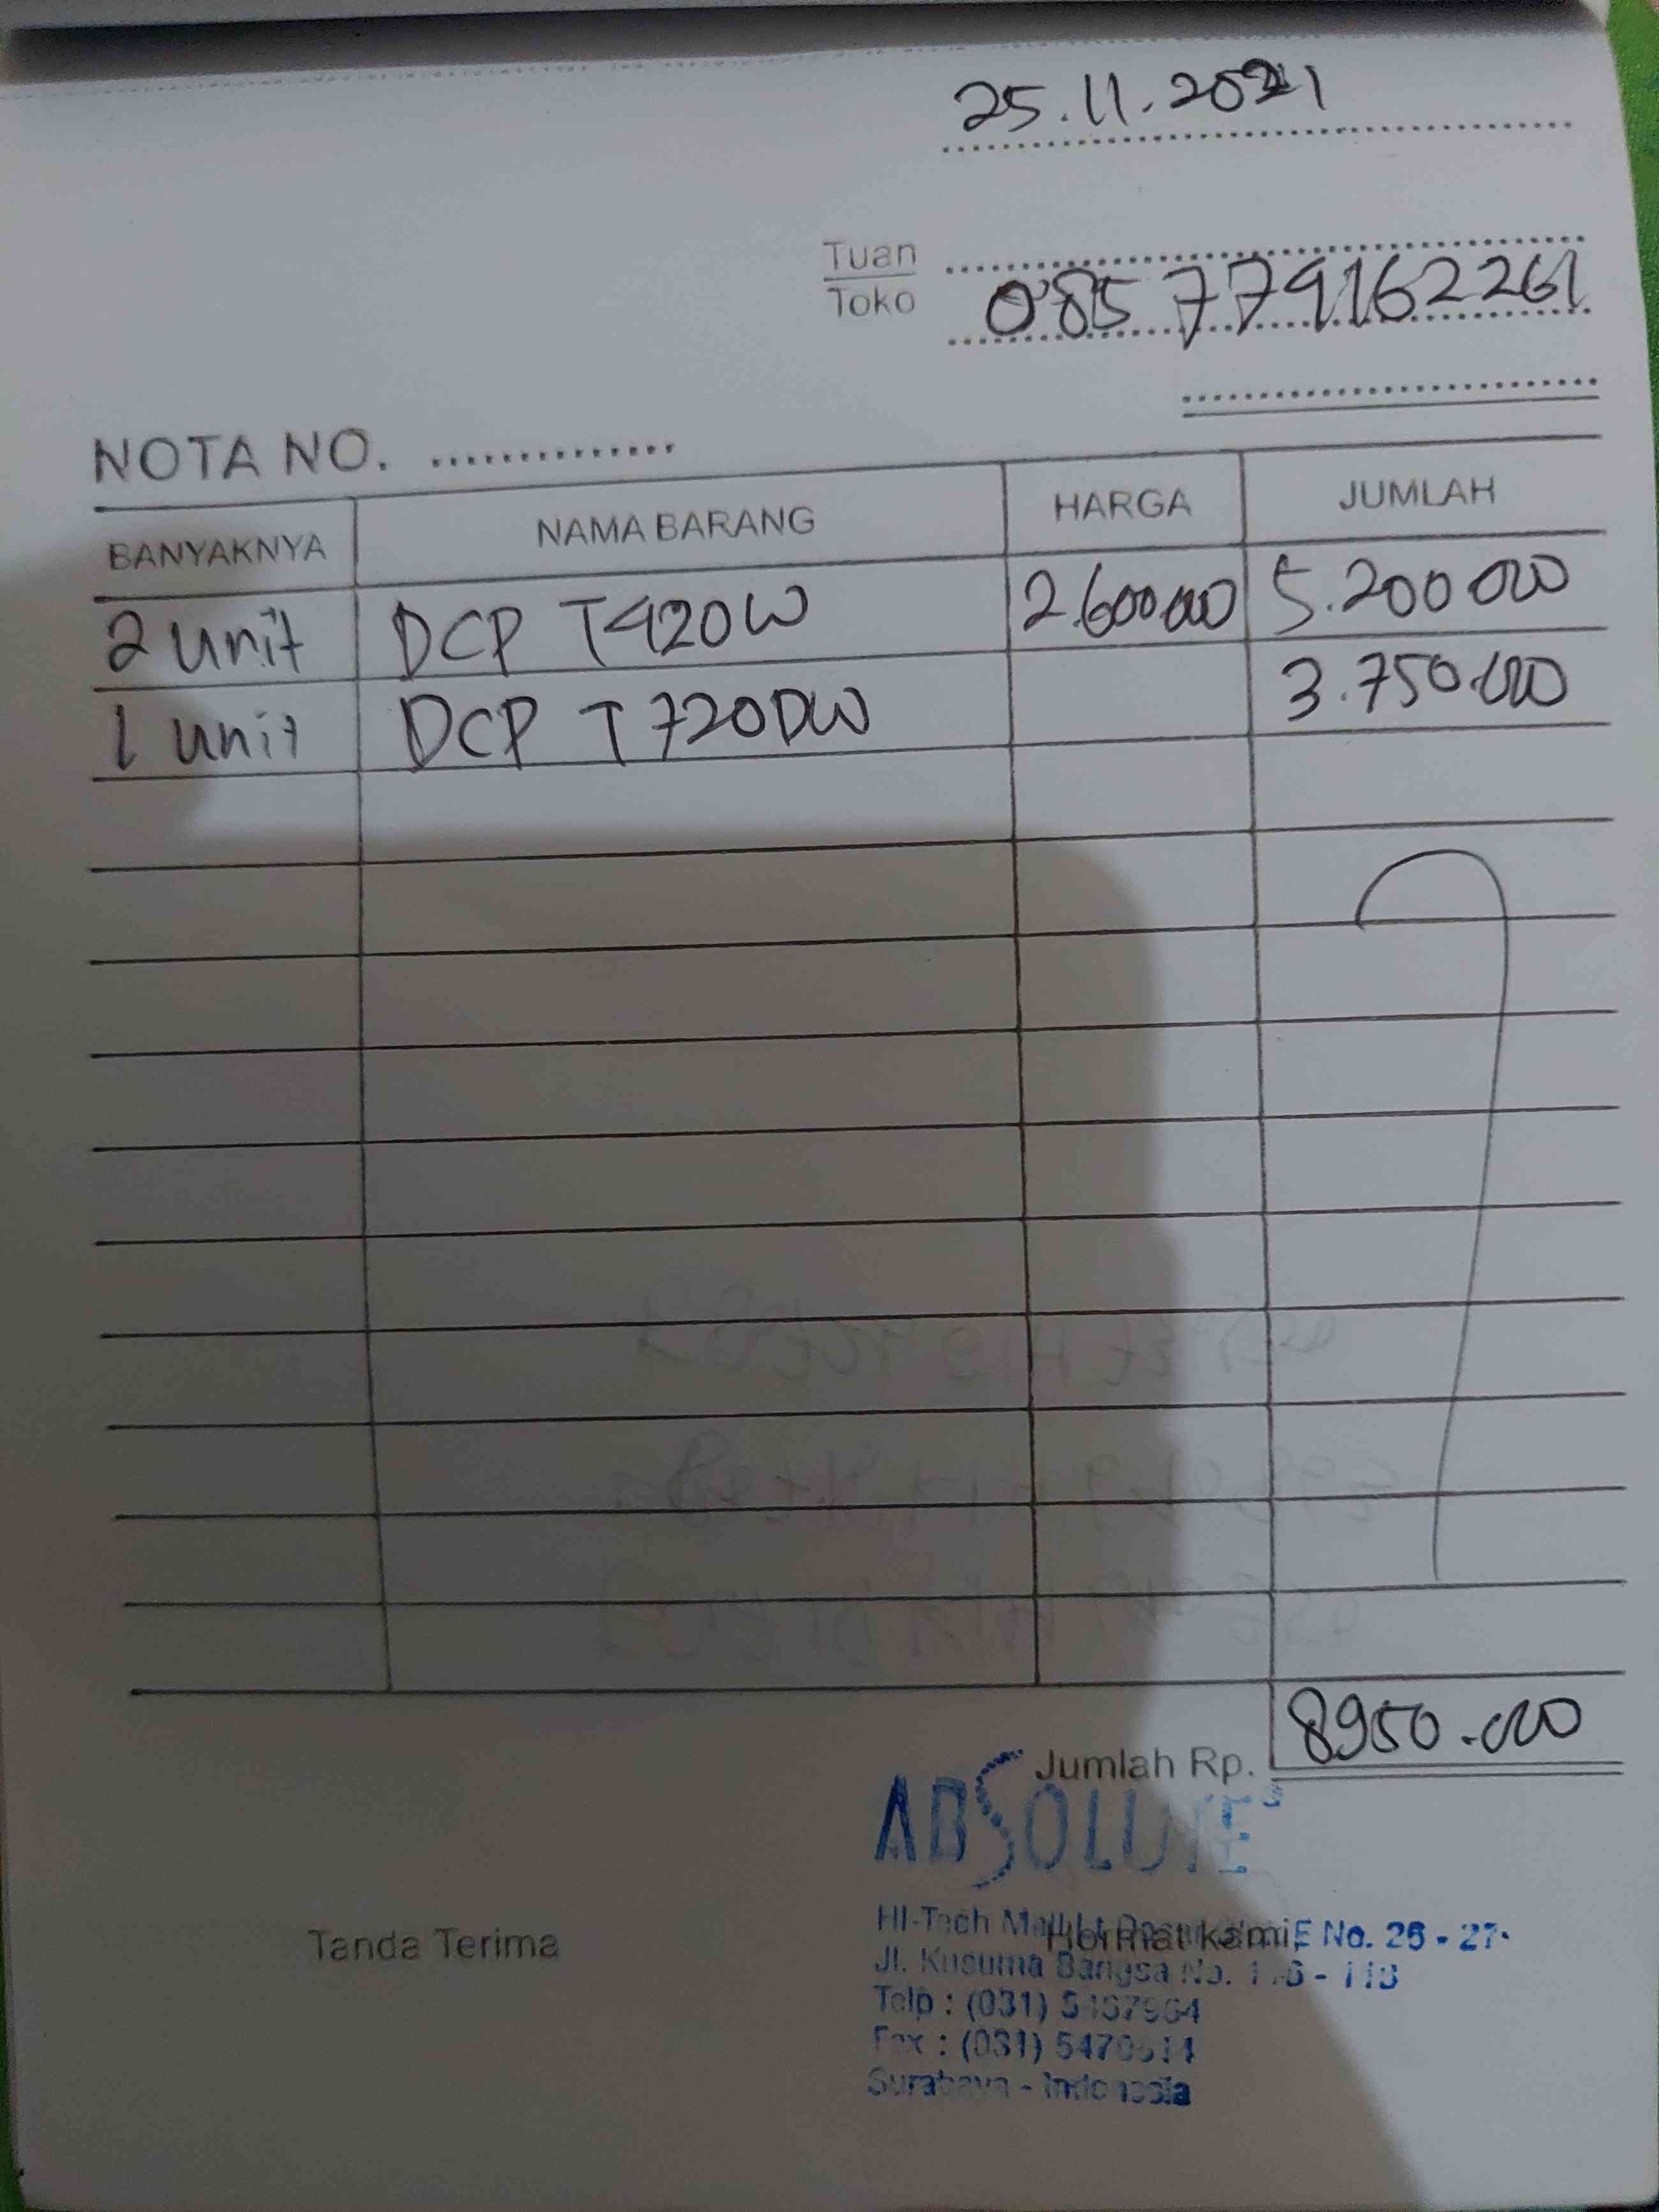 25.11.2021
Tuan
Toko
085779162261
NOTA NO. ..............
BANYAKNYA NAMA BARANG HARGA JUMLAH
2 unit DCP T420W 2.600.000 5.200 000
1 unit DCP T720DW 3.750.000
Jumlah Rp. 8950.000
ABSOLUTE
Tanda Terima
Hormat kami,
HI-Tech Mall E No. 25 - 27
Jl. Kusuma Bangsa No. - 118
Telp : (031)
Fax : (031)
Surabaya - Indonesia